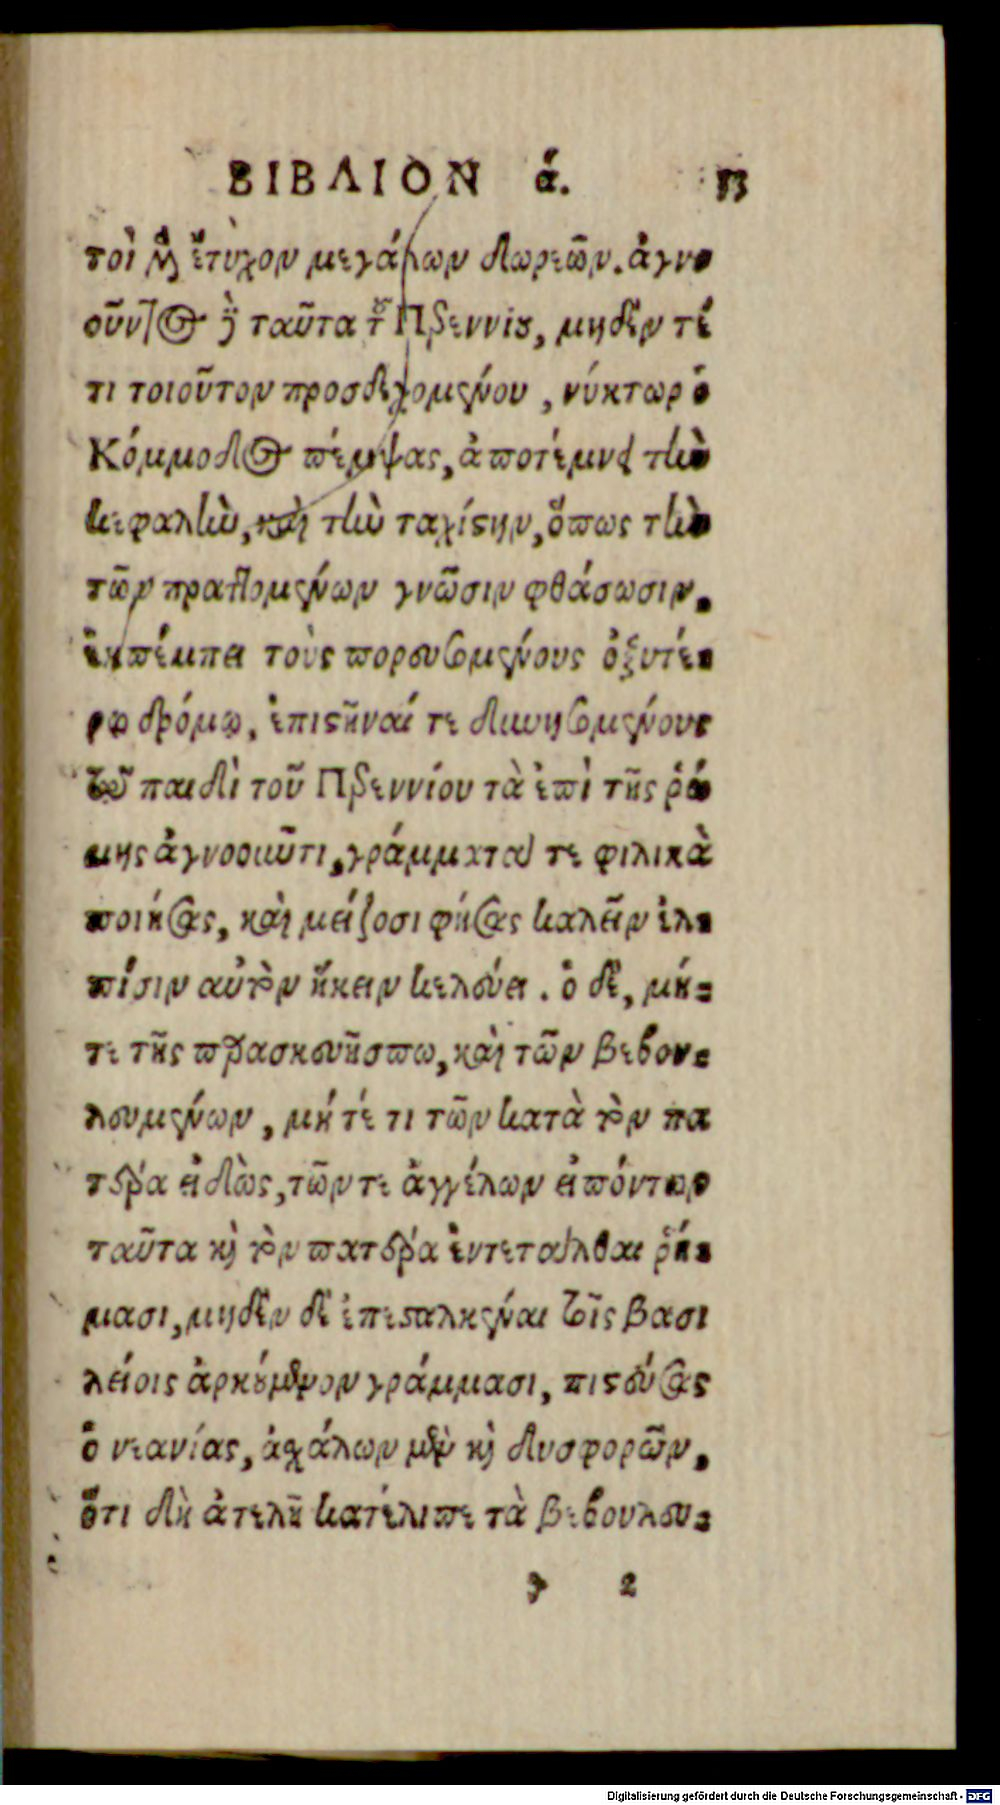 ΒΙΒΛΙΟΝ ά. 53
τοὶ μὴ ἔτυχον μεγάλων δωρεῶν. ἀγνο
οῦντος δὲ ταῦτα τοῦ Πρεννίου, μηδέν τέ
τι τοιοῦτον προσδεχομένου, νύκτωρ ὁ
Κόμμοδος πέμψας, ἀποτέμνει τὴν
κεφαλὴν, καὶ τὴν ταχίστην, ὅπως τὴν
τῶν πραττομένων γνῶσιν φθάσωσιν.
ἐκπέμπει τοὺς πορευσομένους ὀξυτέ-
ρῳ δρόμῳ, ἐπιστῆναί τε δυνησομένους
τῷ παιδὶ τοῦ Πρεννίου τὰ ἐπὶ τῆς ῥώ
μης ἀγνοοιῦτι, γράμματά τε φιλικὰ
ποιήσας, καὶ μείζοσι φήσας καλεῖν ἐλ-
πίσιν αὐτὸν ἥκειν κελεύει. ὁ δὲ, μή-
τε τῆς παρασκευῆς πω, καὶ τῶν βεβου-
λευμένων, μήτέ τι τῶν κατὰ τὸν πα
τέρα εἰδὼς, τῶν τε ἀγγέλων εἰπόντων
ταῦτα καὶ τὸν πατέρα ἐντετάλθαι ῥή-
μασι, μηδὲν δὲ ἐπεσταλκέναι τοῖς βασι
λείοις ἀρκούμενον γράμμασι, πιστεύσας
ὁ νεανίας, ἀσχάλων μὲν καὶ δυσφορῶν,
ὅτι δὴ ἀτελῆ κατέλιπε τὰ βεβουλευ-
2
Digitalisierung gefördert durch die Deutsche Forschungsgemeinschaft - DFG